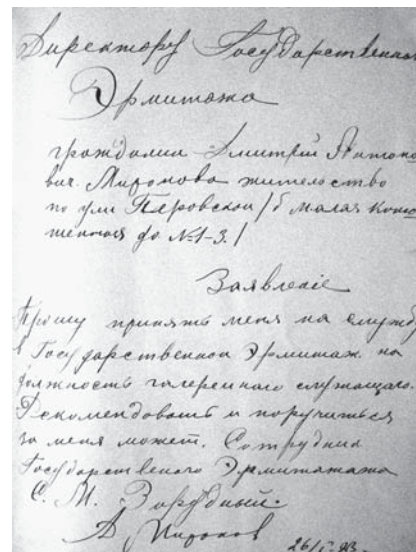 Директору Государственного
Эрмитажа
гражданин Дмитрий Антоно
вич. Миронова жительство
по ули Перовской / б Малая Коню
шенная до № 1-3. /
Заявленіе
Прошу принять меня на службу
в Государственной Эрмитаж на
должность галерейнаго служащаго.
Рекомендовать и поручиться
за меня может. Сотрудник
Государственаго Эрмитажа
С. М. Зарудный.
Д Миронов